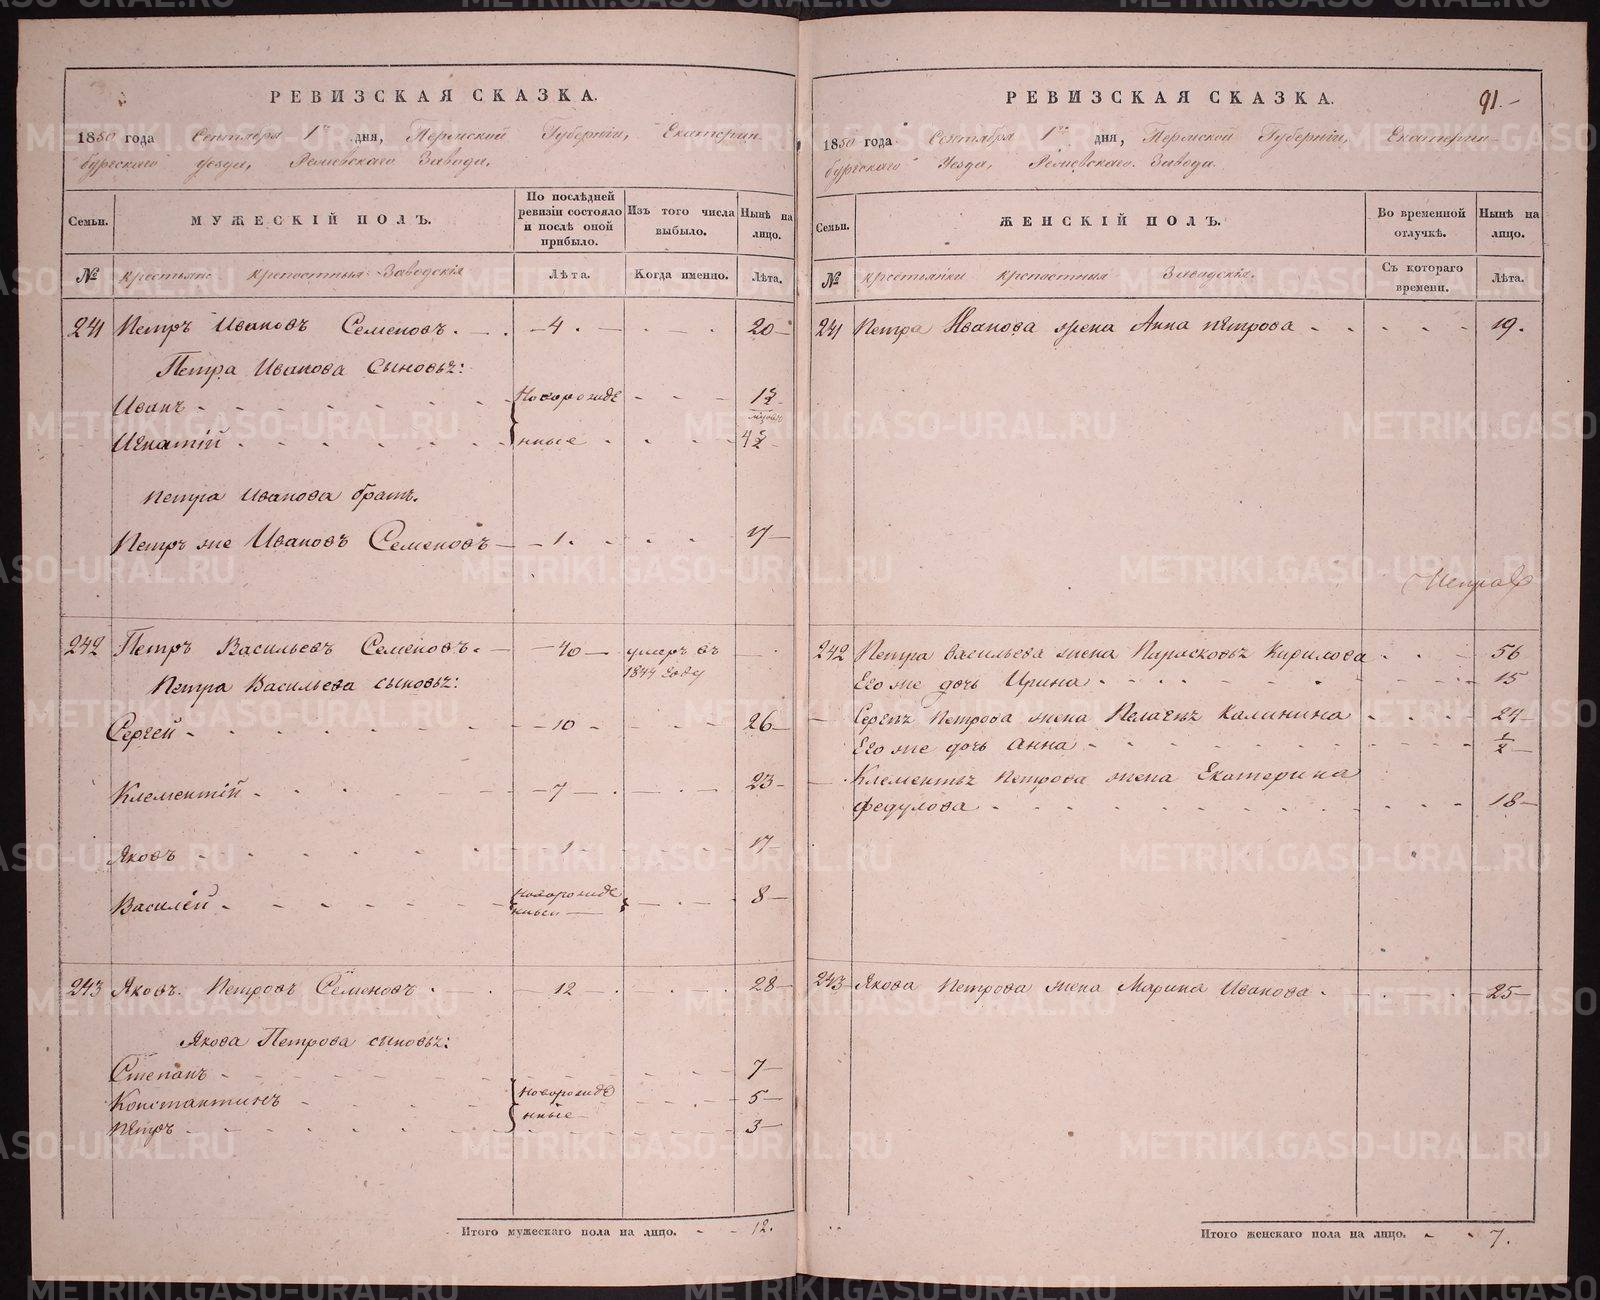 РЕВИЗСКАЯ СКАЗКА.
1850 года Сентября 1го дня, Пермской Губернiи, Екатерин-
бургскаго уезда, Завода.
Семьи.
МУЖЕСКIЙ ПОЛЪ.
По послѣдней ревизiи состояло и послѣ оной прибыло.
Изъ того числа выбыло.
Нынѣ на лицо.
№
крестьяне крепостныя Заводскiя
Лѣта.
Когда именно.
Лѣта.
241 Петръ Ивановъ Семеновъ. 4. 20
Петра Иванова Сыновьѣ:
Иванъ Новорожде 1½
Игнатiй нные
Петра Иванова братъ.
Петръ же Ивановъ Семеновъ 1. 17
242 Петръ Васильевъ Семеновъ. 40 умеръ въ 1844 году
Петра Васильева сыновьѣ:
Сергей 10 26
Клементiй 7 23
Яковъ 1 17
Василей Новорожде нный 8
243 Яковъ Петровъ Семеновъ 12 28
Якова Петрова сыновьѣ:
Степанъ 7
Константинъ новорожде 5
Пѣтръ нные 3
Итого мужескаго пола на лицо. 12.
РЕВИЗСКАЯ СКАЗКА. 91.
1850 года Сентября 1го дня, Пермской Губернiи, Екатерин-
бургскаго Уезда, Завода.
Семьи.
ЖЕНСКIЙ ПОЛЪ.
Во временной отлучкѣ.
Нынѣ на лицо.
№
крестьянки крепостныя Заводскiя.
Съ котораго времени.
Лѣта.
241 Петра Иванова жена Анна пѣтрова 19.
242 Петра васильева жена Парасковьѣ Кирилова 56
Его же дочь Ирина 15
Сергеѣ Петрова жена Пелагеѣ Калинина 24
Его же дочь Анна ½
Клементьѣ Петрова жена Екатерина
федулова 18
243 Якова Петрова жена Марина Иванова. 25
Итого женскаго пола на лицо. 7.
METRIKI.GASO-URAL.RU